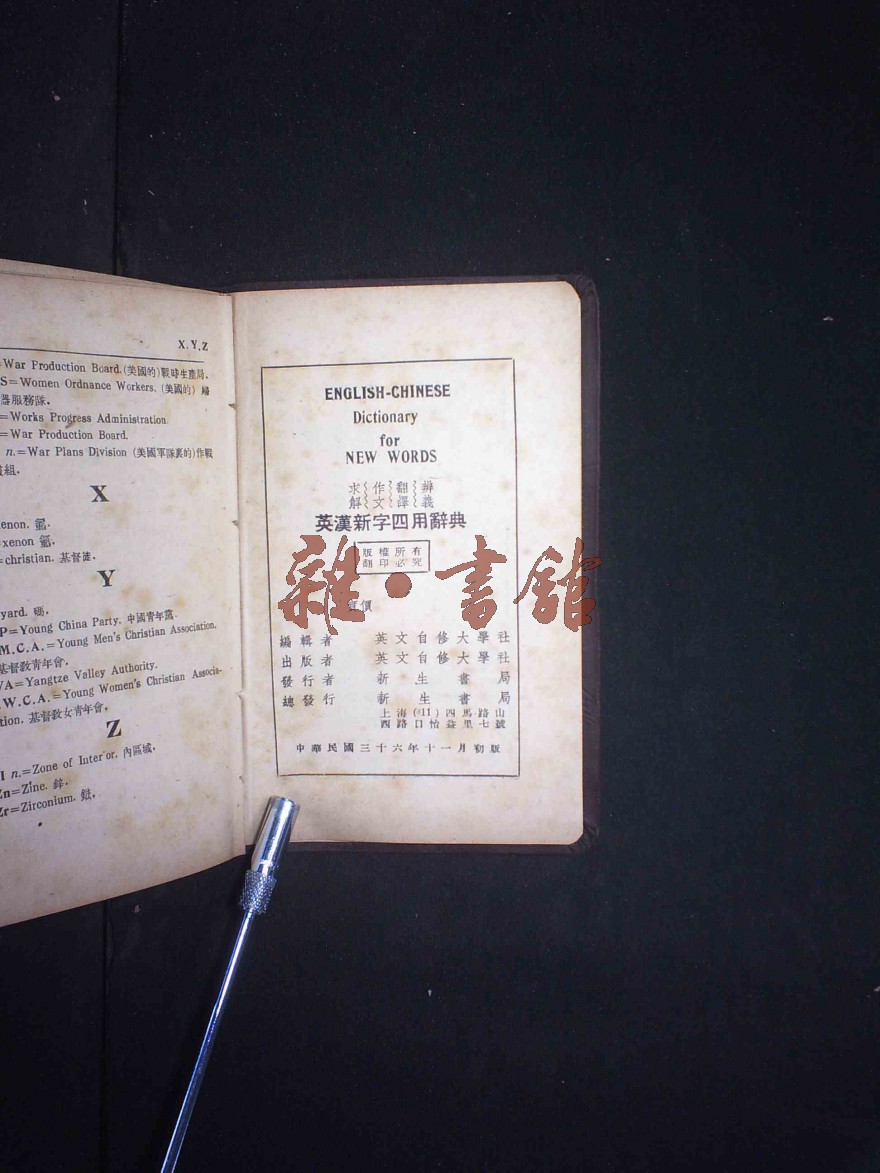 X.Y.Z
=War Production Board.(美國的)戰時生產局.
S=Women Ordnance Workers. (美國的) 婦
器服務隊.
=Works Progress Administration.
=War Production Board.
n.=War Plans Division (美國軍隊裏的)作戰
組.
X
enon. 氙.
=xenon 氙.
=christian. 基督徒.
Y
yard. 碼.
P=Young China Party. 中國青年黨.
M.C.A.=Young Men's Christian Association.
基督教青年會.
VA=Yangtze Valley Authority.
.W.C.A.=Young Women's Christian Associa-
tion. 基督教女青年會.
Z
I n.=Zone of Inter or. 內區域.
Zn=Zine. 鋅.
Zr=Zirconium. 鋯.
ENGLISH-CHINESE
Dictionary
for
NEW WORDS
求解 作文 翻譯 辨義
英漢新字四用辭典
版權所有
翻印必究
雜·書館
實價
編輯者 英文自修大學社
出版者 英文自修大學社
發行者 新生書局
總發行 新生書局
上海(11)四馬路山
西路口怡益里七號
中華民國三十六年十一月初版